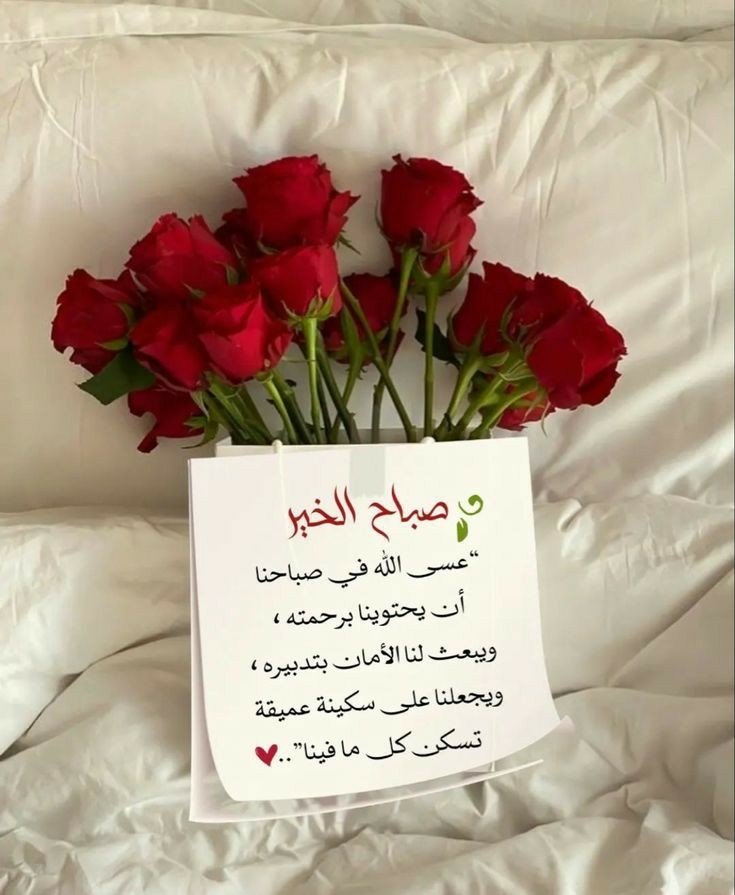 صباح الخير
“عسى الله في صباحنا
أن يحتوينا برحمته ،
ويبعث لنا الأمان بتدبيره ،
ويجعلنا على سكينة عميقة
تسكن كل ما فينا”..